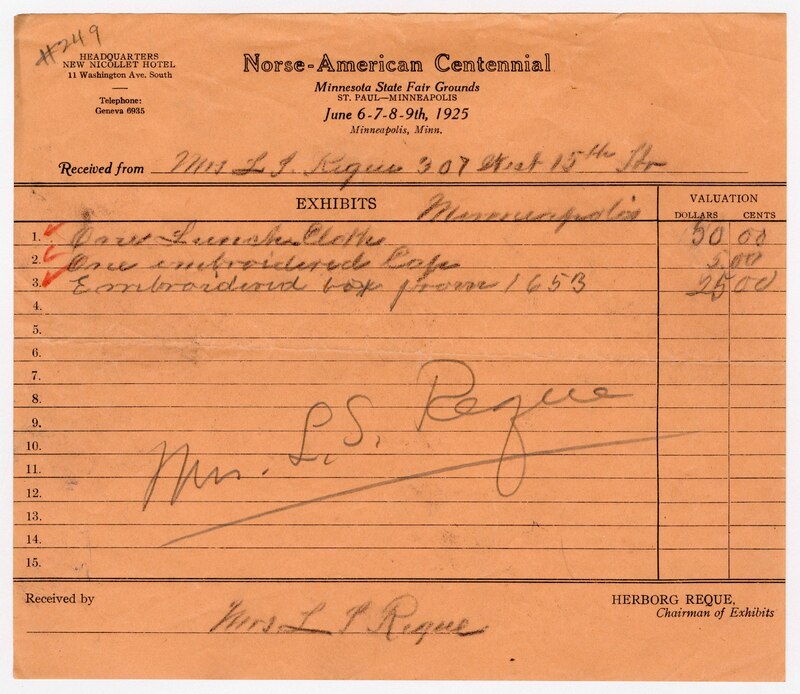 #249
HEADQUARTERS
NEW NICOLLET HOTEL
11 Washington Ave. South
Telephone:
Geneva 6935
Norse-American Centennial
Minnesota State Fair Grounds
ST. PAUL—MINNEAPOLIS
June 6-7-8-9th, 1925
Minneapolis, Minn.
Received from Mrs L S. Reque 307 West 15th Str
EXHIBITS Minneapolis VALUATION
DOLLARS CENTS
1. One Lunch Cloth 50 00
2. One embroidered Cap 5 00
3. Embroidered box from 1653 25 00
4.
5.
6.
7.
8.
9.
10.
11.
12.
13.
14.
15.
Mrs. L. S. Reque
Received by Mrs L S Reque
HERBORG REQUE,
Chairman of Exhibits